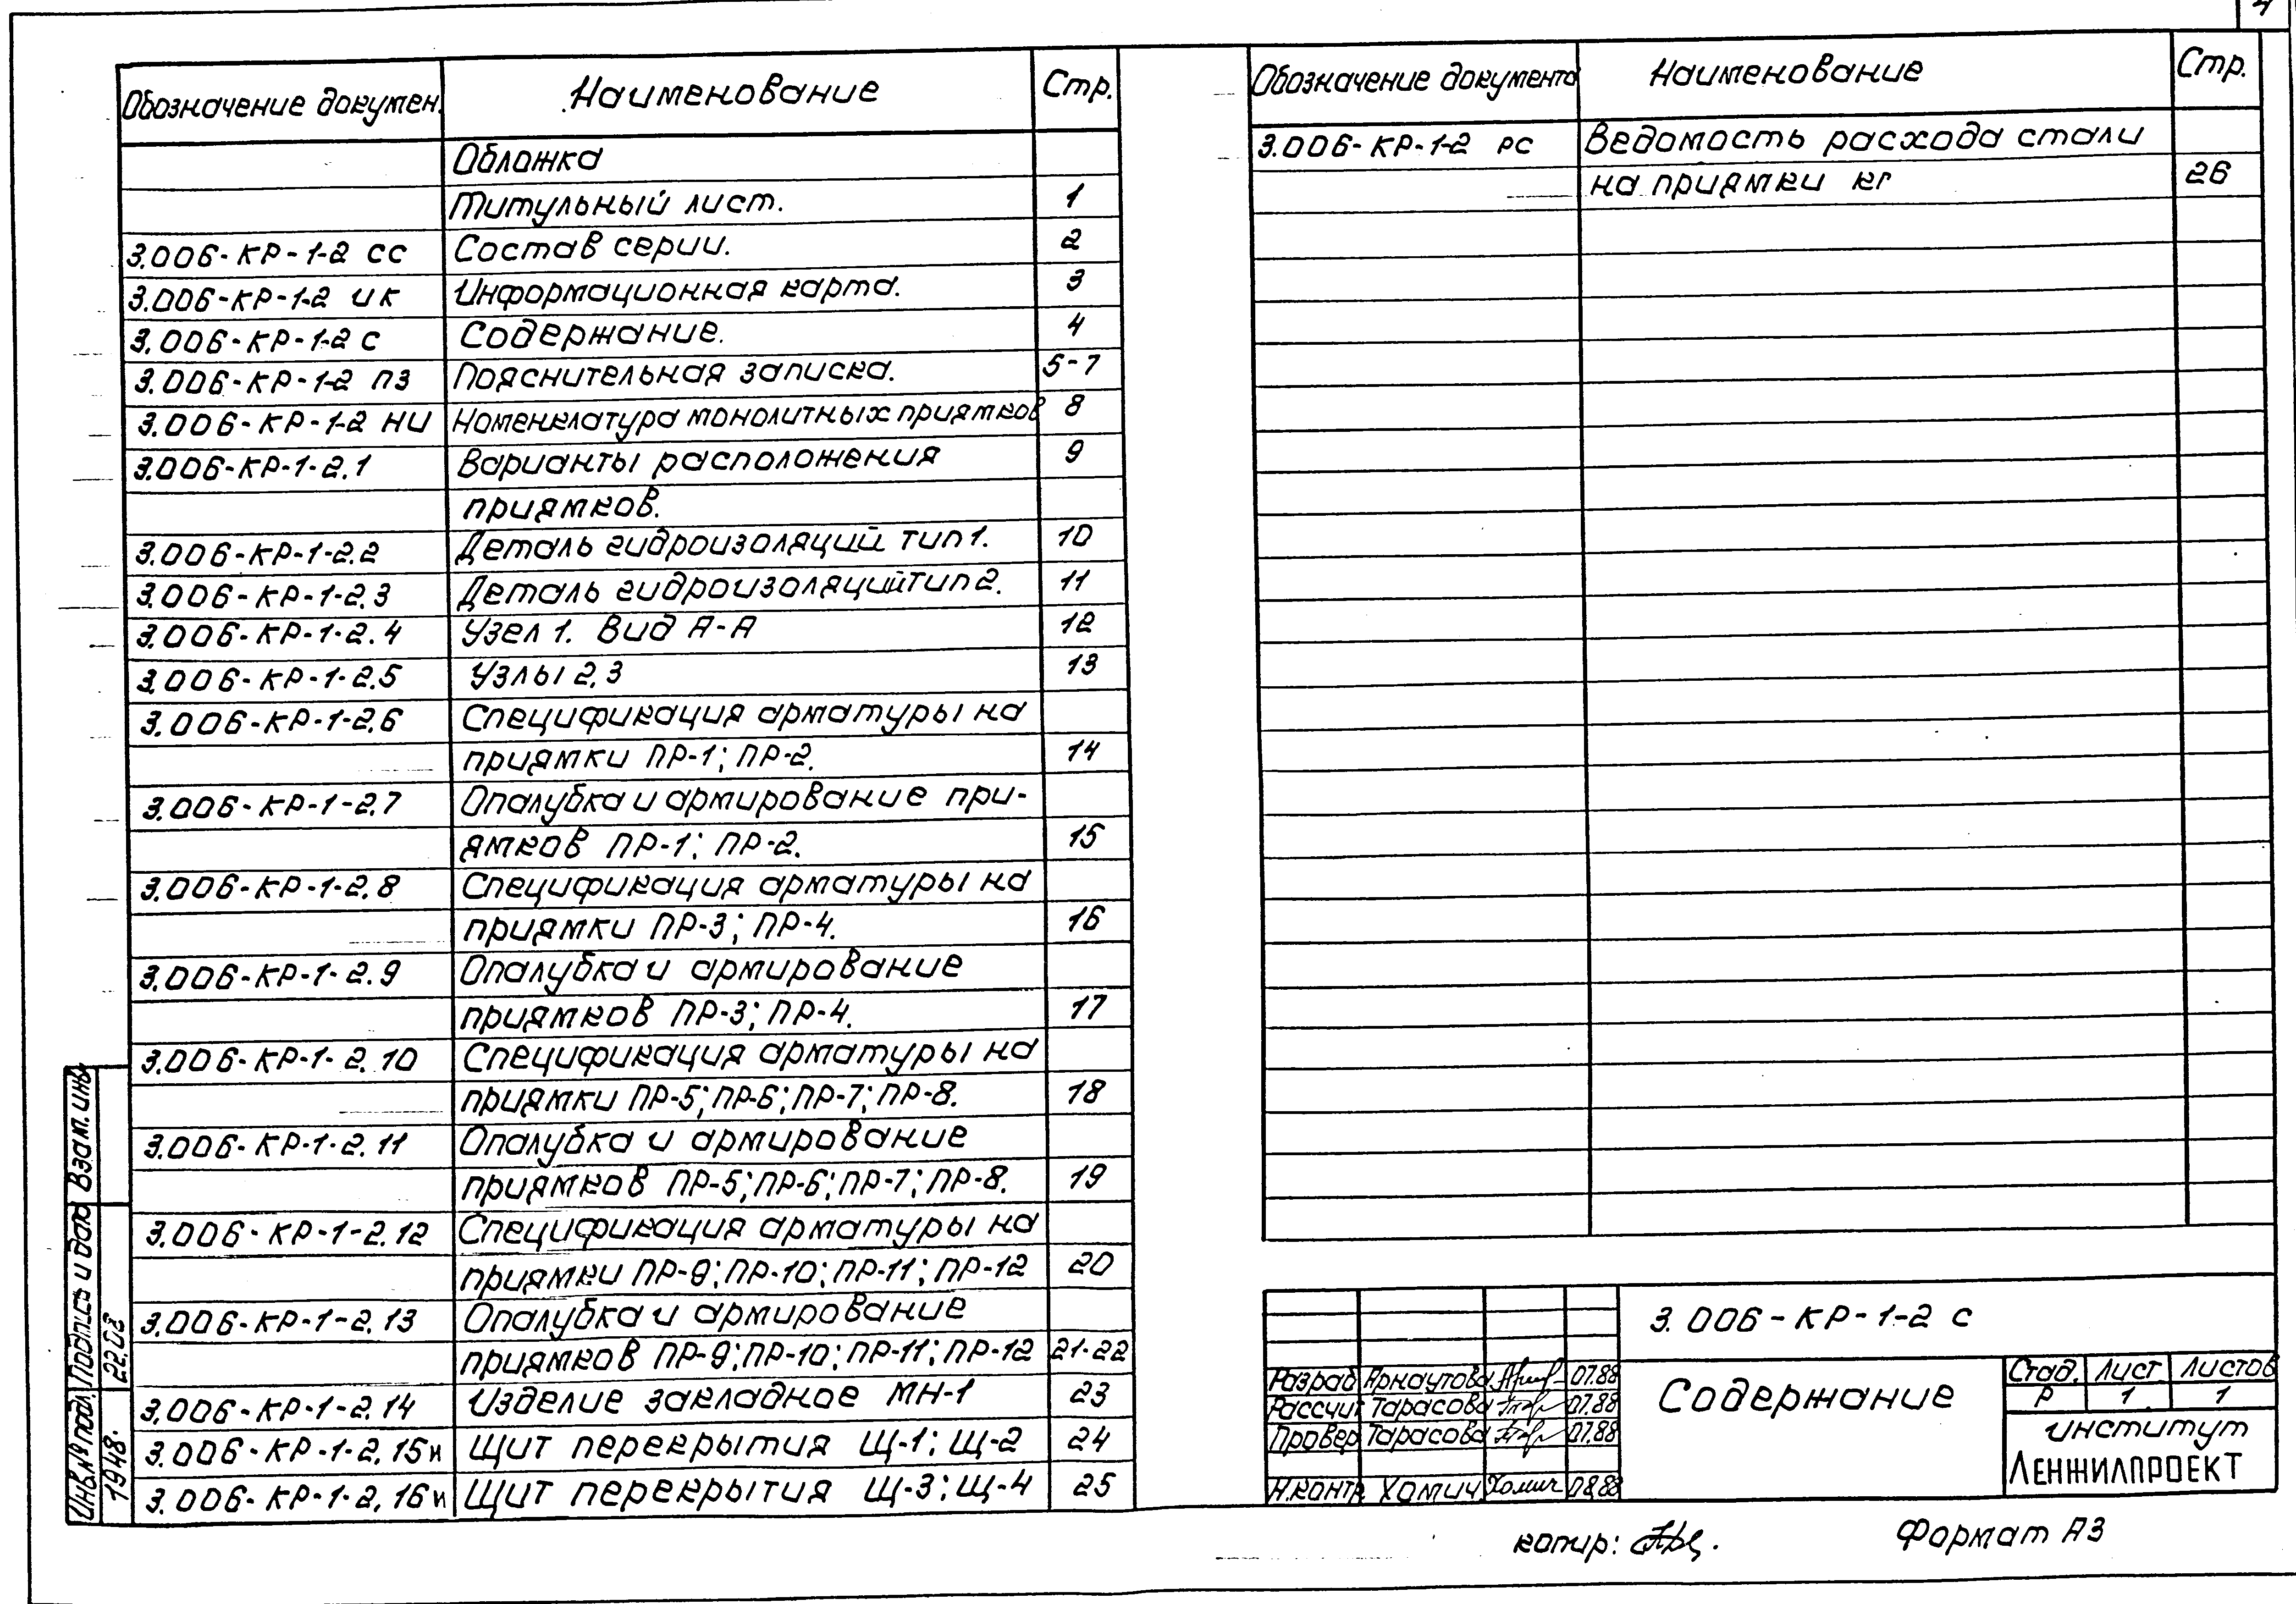 4
Обозначение докумен. Наименование Стр.
Обложка
Титульный лист. 1
3.006-КР-1-2 СС Состав серии. 2
3.006-КР-1-2 ИК Информационная карта. 3
3.006-КР-1-2 С Содержание. 4
3.006-КР-1-2 ПЗ Пояснительная записка. 5-7
3.006-КР-1-2 НИ Номенклатура монолитных приямков 8
3.006-КР-1-2.1 Варианты расположения 9
приямков.
3.006-КР-1-2.2 Деталь гидроизоляций тип 1. 10
3.006-КР-1-2.3 Деталь гидроизоляций тип 2. 11
3.006-КР-1-2.4 Узел 1. Вид А-А 12
3.006-КР-1-2.5 Узлы 2,3 13
3.006-КР-1-2.6 Спецификация арматуры на
приямки ПР-1; ПР-2. 14
3.006-КР-1-2.7 Опалубка и армирование при-
ямков ПР-1; ПР-2. 15
3.006-КР-1-2.8 Спецификация арматуры на
приямки ПР-3; ПР-4. 16
3.006-КР-1-2.9 Опалубка и армирование
приямков ПР-3; ПР-4. 17
3.006-КР-1-2.10 Спецификация арматуры на
приямки ПР-5; ПР-6; ПР-7; ПР-8. 18
3.006-КР-1-2.11 Опалубка и армирование
приямков ПР-5; ПР-6; ПР-7; ПР-8. 19
3.006-КР-1-2.12 Спецификация арматуры на
приямки ПР-9; ПР-10; ПР-11; ПР-12 20
3.006-КР-1-2.13 Опалубка и армирование
приямков ПР-9; ПР-10; ПР-11; ПР-12 21-22
3.006-КР-1-2.14 Изделие закладное МН-1 23
3.006-КР-1-2.15и Щит перекрытия Щ-1; Щ-2 24
3.006-КР-1-2.16и Щит перекрытия Щ-3; Щ-4 25
Обозначение документа Наименование Стр.
3.006-КР-1-2 РС Ведомость расхода стали
на приямки кг 26
Взам. инв
Подпись и дар
22.08
Инв.№ подл.
1948.
3.006-КР-1-2 С
Разраб Арнаутова 07.88
Рассчит Тарасова 07.88
Провер Тарасова 07.88
Н.контр. Хомич Хомич 08.88
Содержание
Стад. Лист Листов
Р 1 1
институт
ЛЕНЖИЛПРОЕКТ
копир:
Формат А3